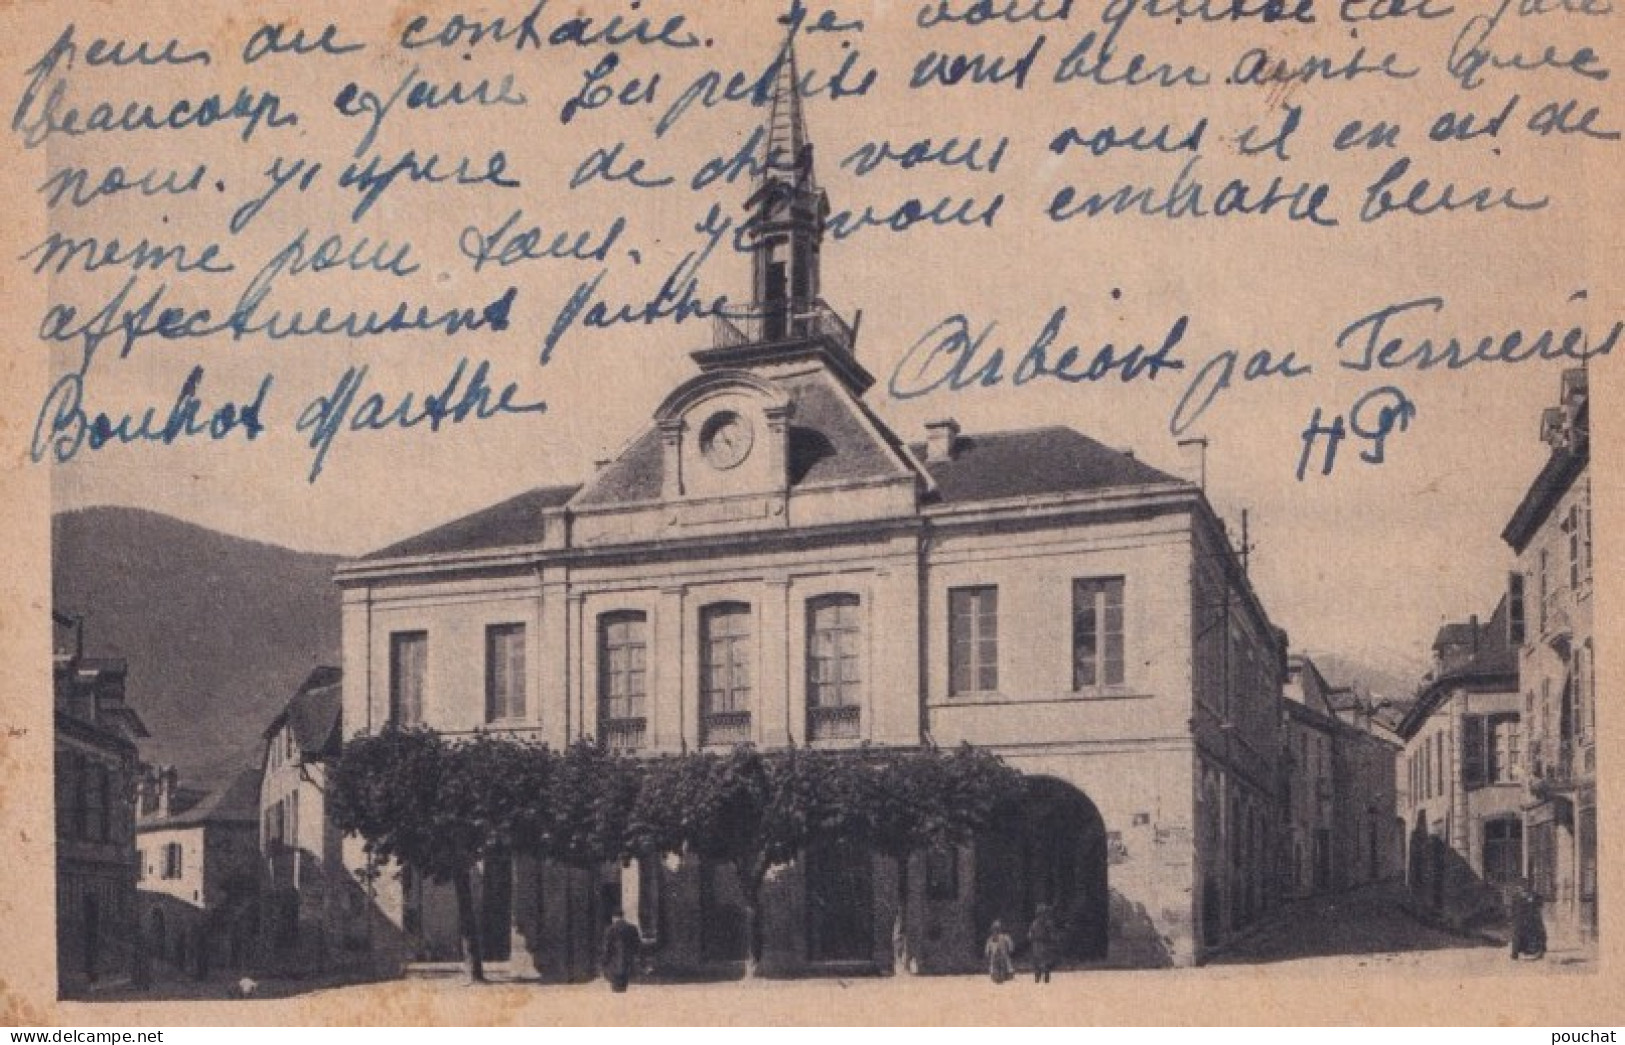 peur au contaire. Je vous quitte car jaie
beaucoup efaire Les petits vont bien ainise que
nous. Y'espere de che vous vous il en ait de
meime pour tous. Je vous embrasse bein
affectueusement Marthe
Bouhot Marthe
Arbeost par Ferrieres
HP
pouchat